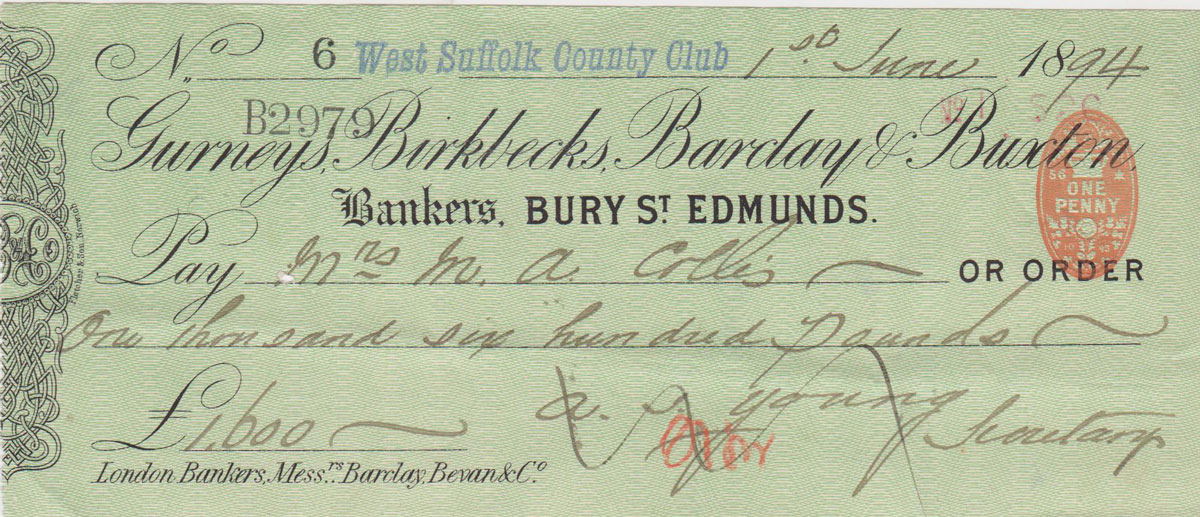 No. 6 West Suffolk County Club 1st June 1894
B2979
Gurneys, Birkbecks, Barclay & Buxton,
Bankers, BURY ST EDMUNDS.
56
ONE
PENNY
Pay Mrs M. A. Collis OR ORDER
One thousand six hundred Pounds
£1,600
a. J. Young
Secretary
Over
London Bankers, Messrs. Barclay, Bevan & Co.
Fletcher & Son, Norwich